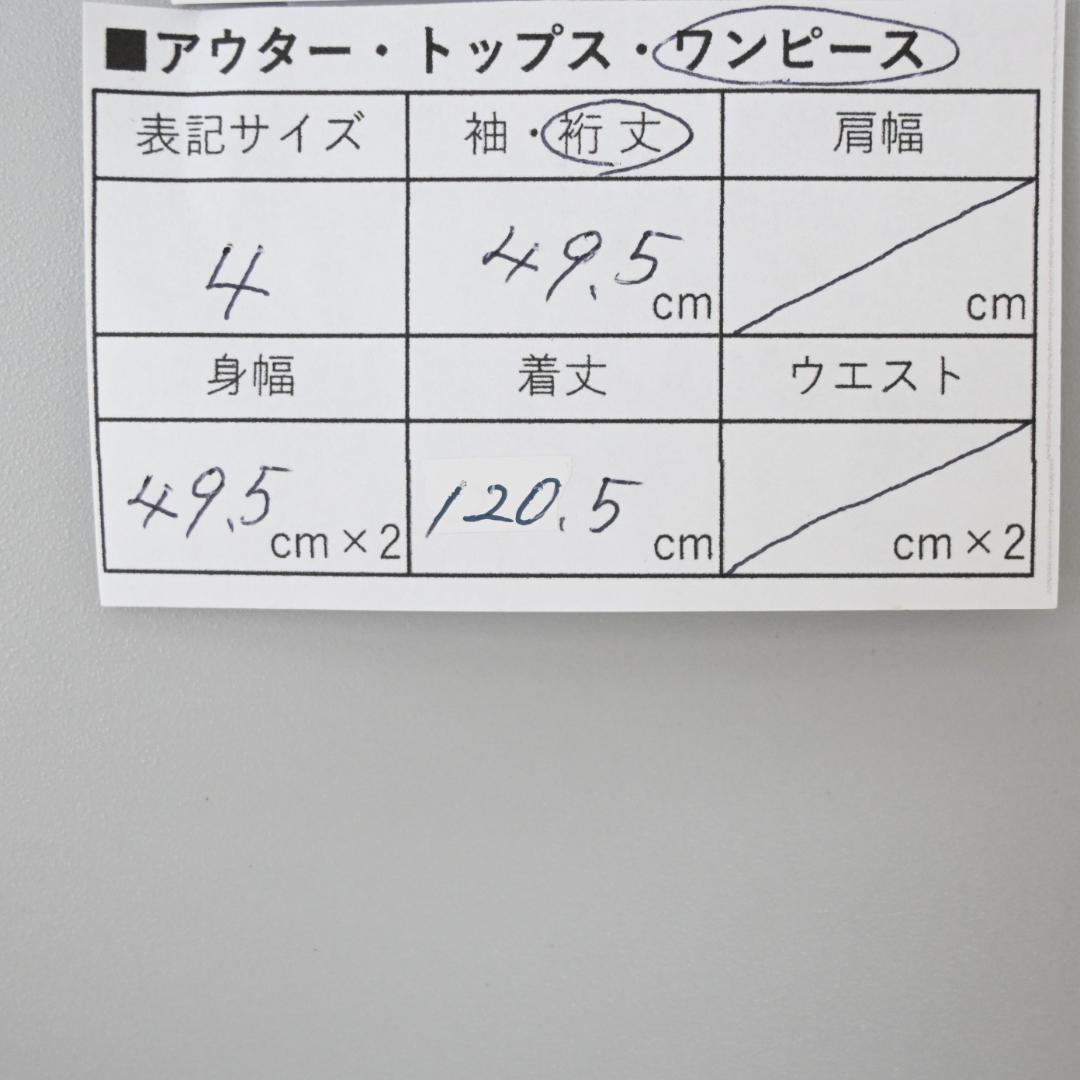 ■アウター・トップス・ワンピース
表記サイズ 袖・裄丈 肩幅
4 49.5cm cm
身幅 着丈 ウエスト
49.5cm×2 120.5cm cm×2